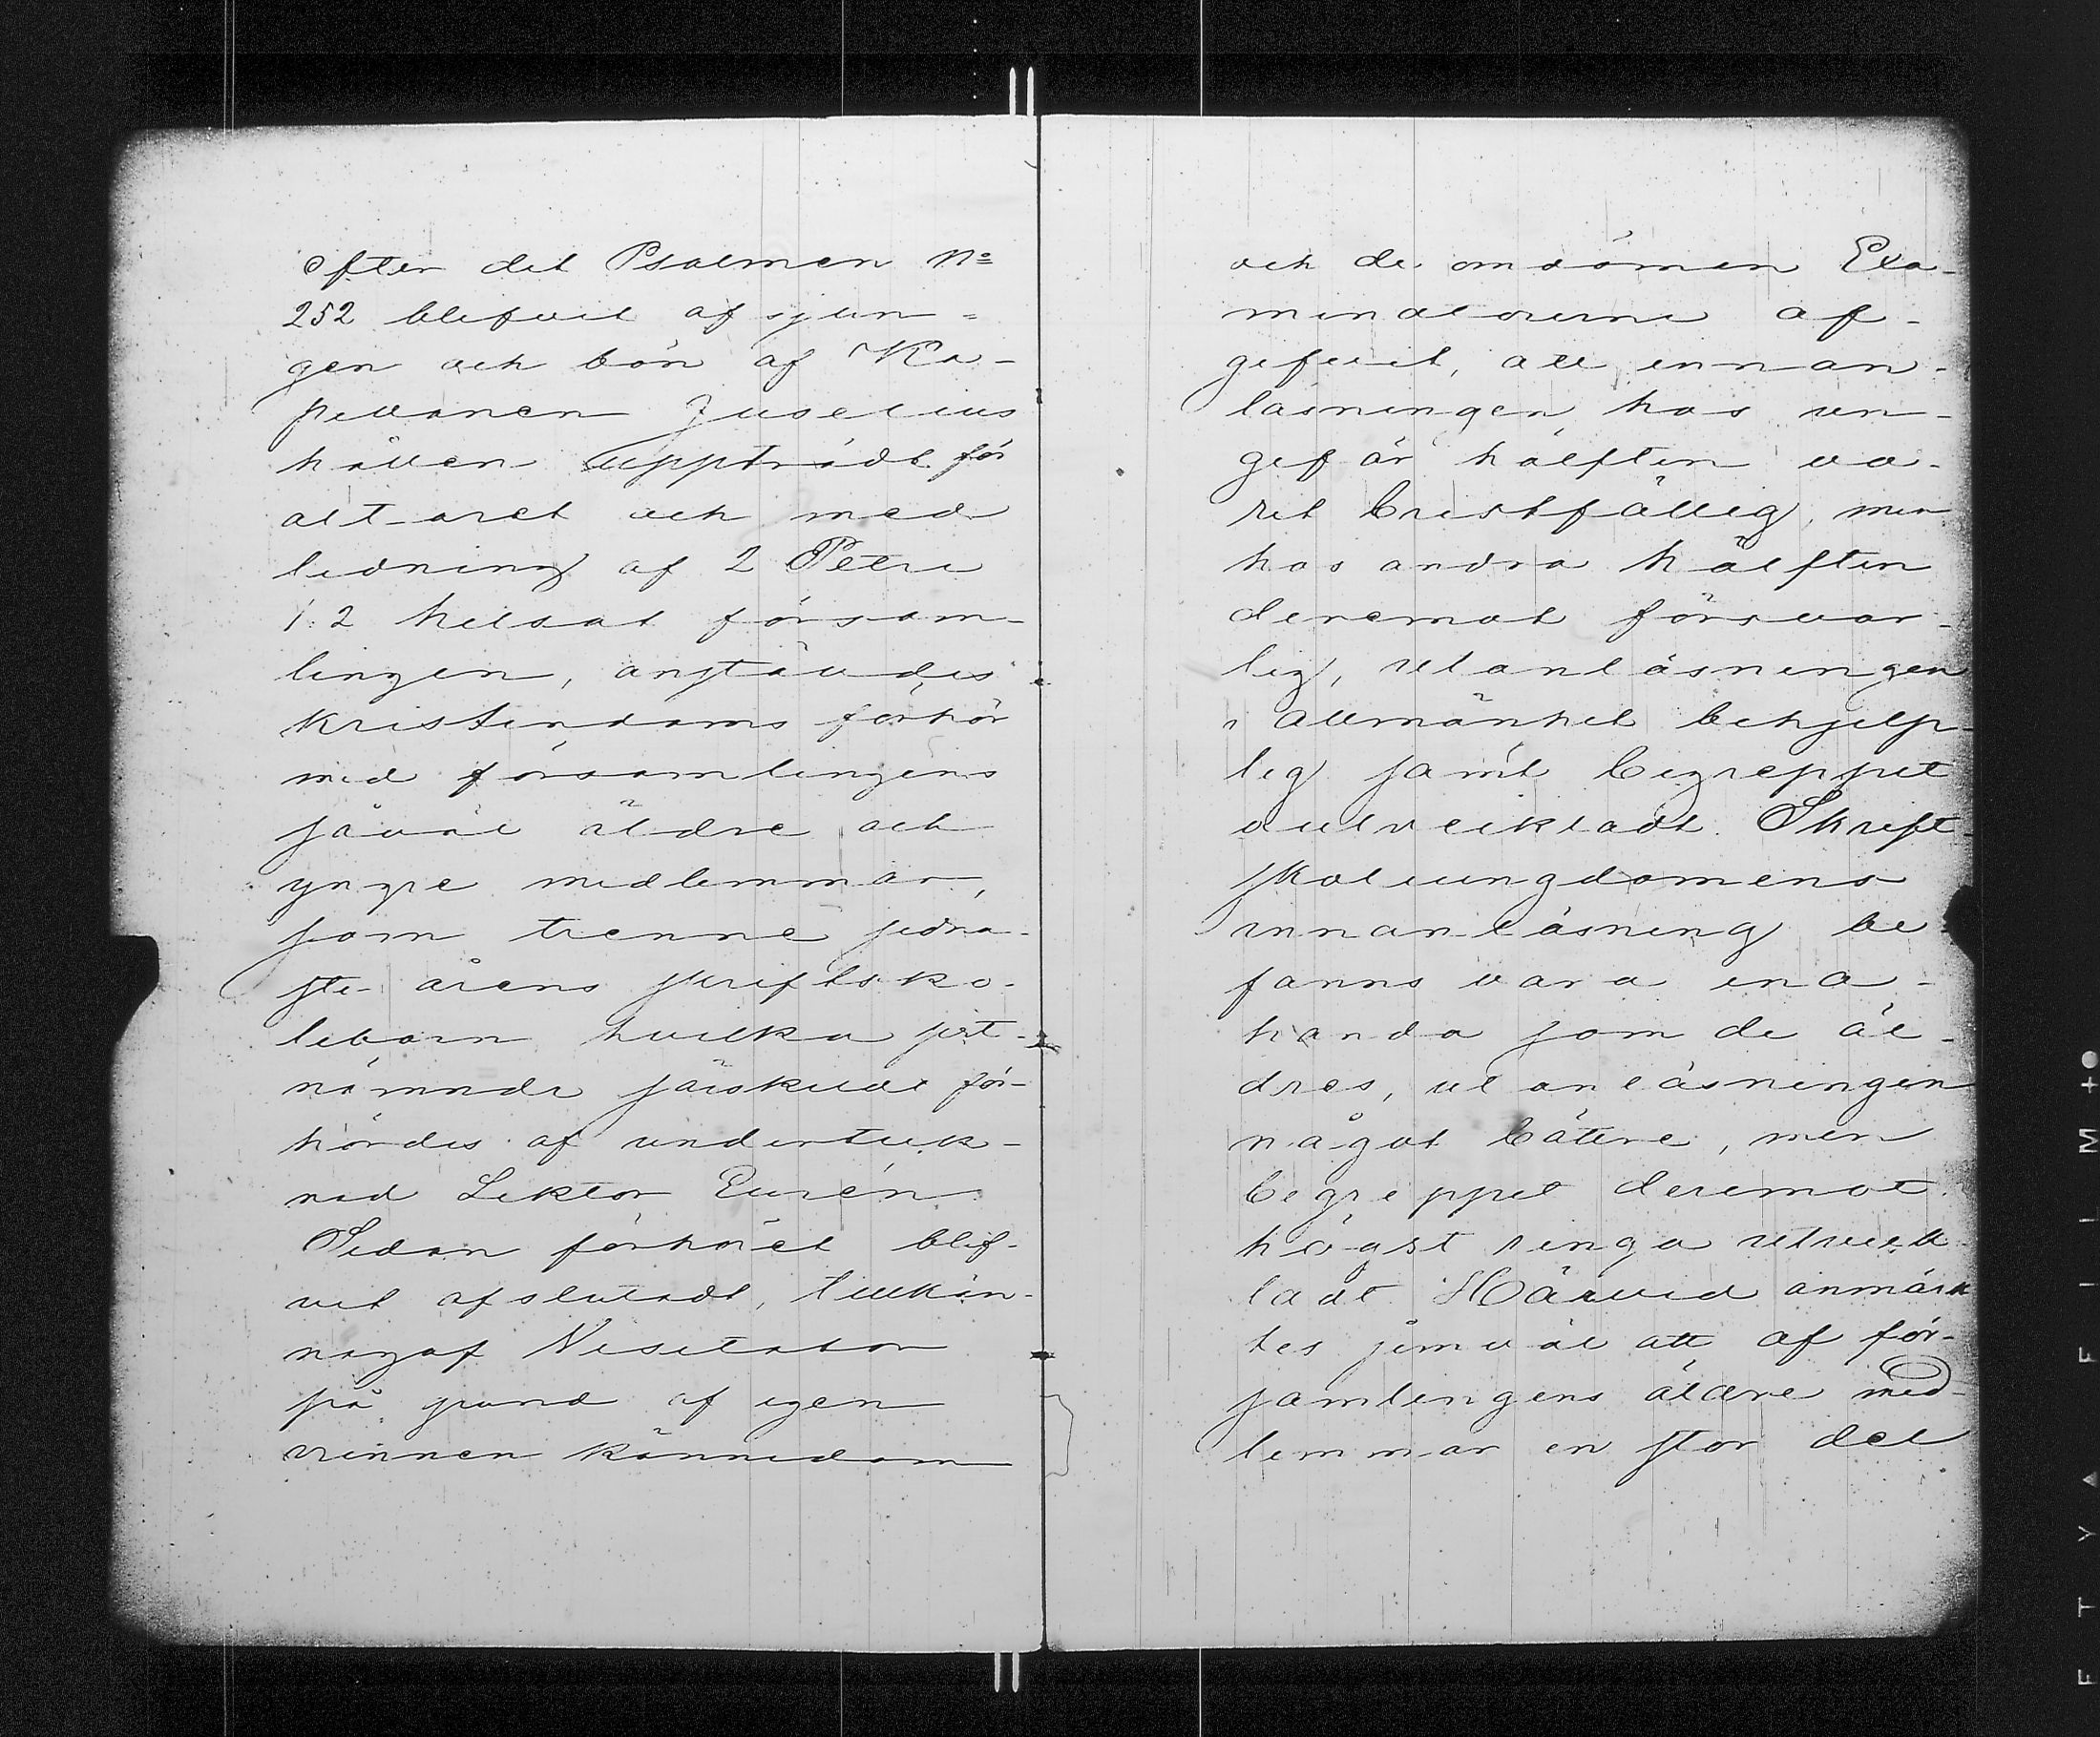 efter det Psalmen No
252 blifvit afsjun=
gen och bön af Ka-
pellanen Juselius
hållen uppträdt för
alt-aret och med
ledning af 2 Petri
1: 2 helsat försam-
lingen, anställdes
kristendoms förhör
med församlingens
såväl äldre och
yngre medlemmar,
som trenne sedna-
ste årens skriftsko-
lebarn hvilka sist-
nämnde särskildt för-
hördes af underteck-
nad Lektor Eurén.
Sedan förhöret blif-
vit afslutadt, tillkän-
nagaf Visitator
på grund af egen
vunnen kännedom
och de omdömen Exa-
minatorerne af-
gifvit, att innan-
läsningen hos un-
gefär hälften va-
rit bristfällig, men
hos andra hälften
deremot försvar-
lig, utanläsningen
i allmänhet behjelp-
lig samt begreppet
outveckladt. Skrift-
skolungdomens
innanläsning be-
fanns vara ena-
handa som de äl-
dres, utanläsningen
något bättre, men
begreppet deremot
högst ringa utveck-
ladt. Härvid anmärk
tes jemväl att af för-
samlingens äldre med-
lemmar en stor del
FTYA FILM